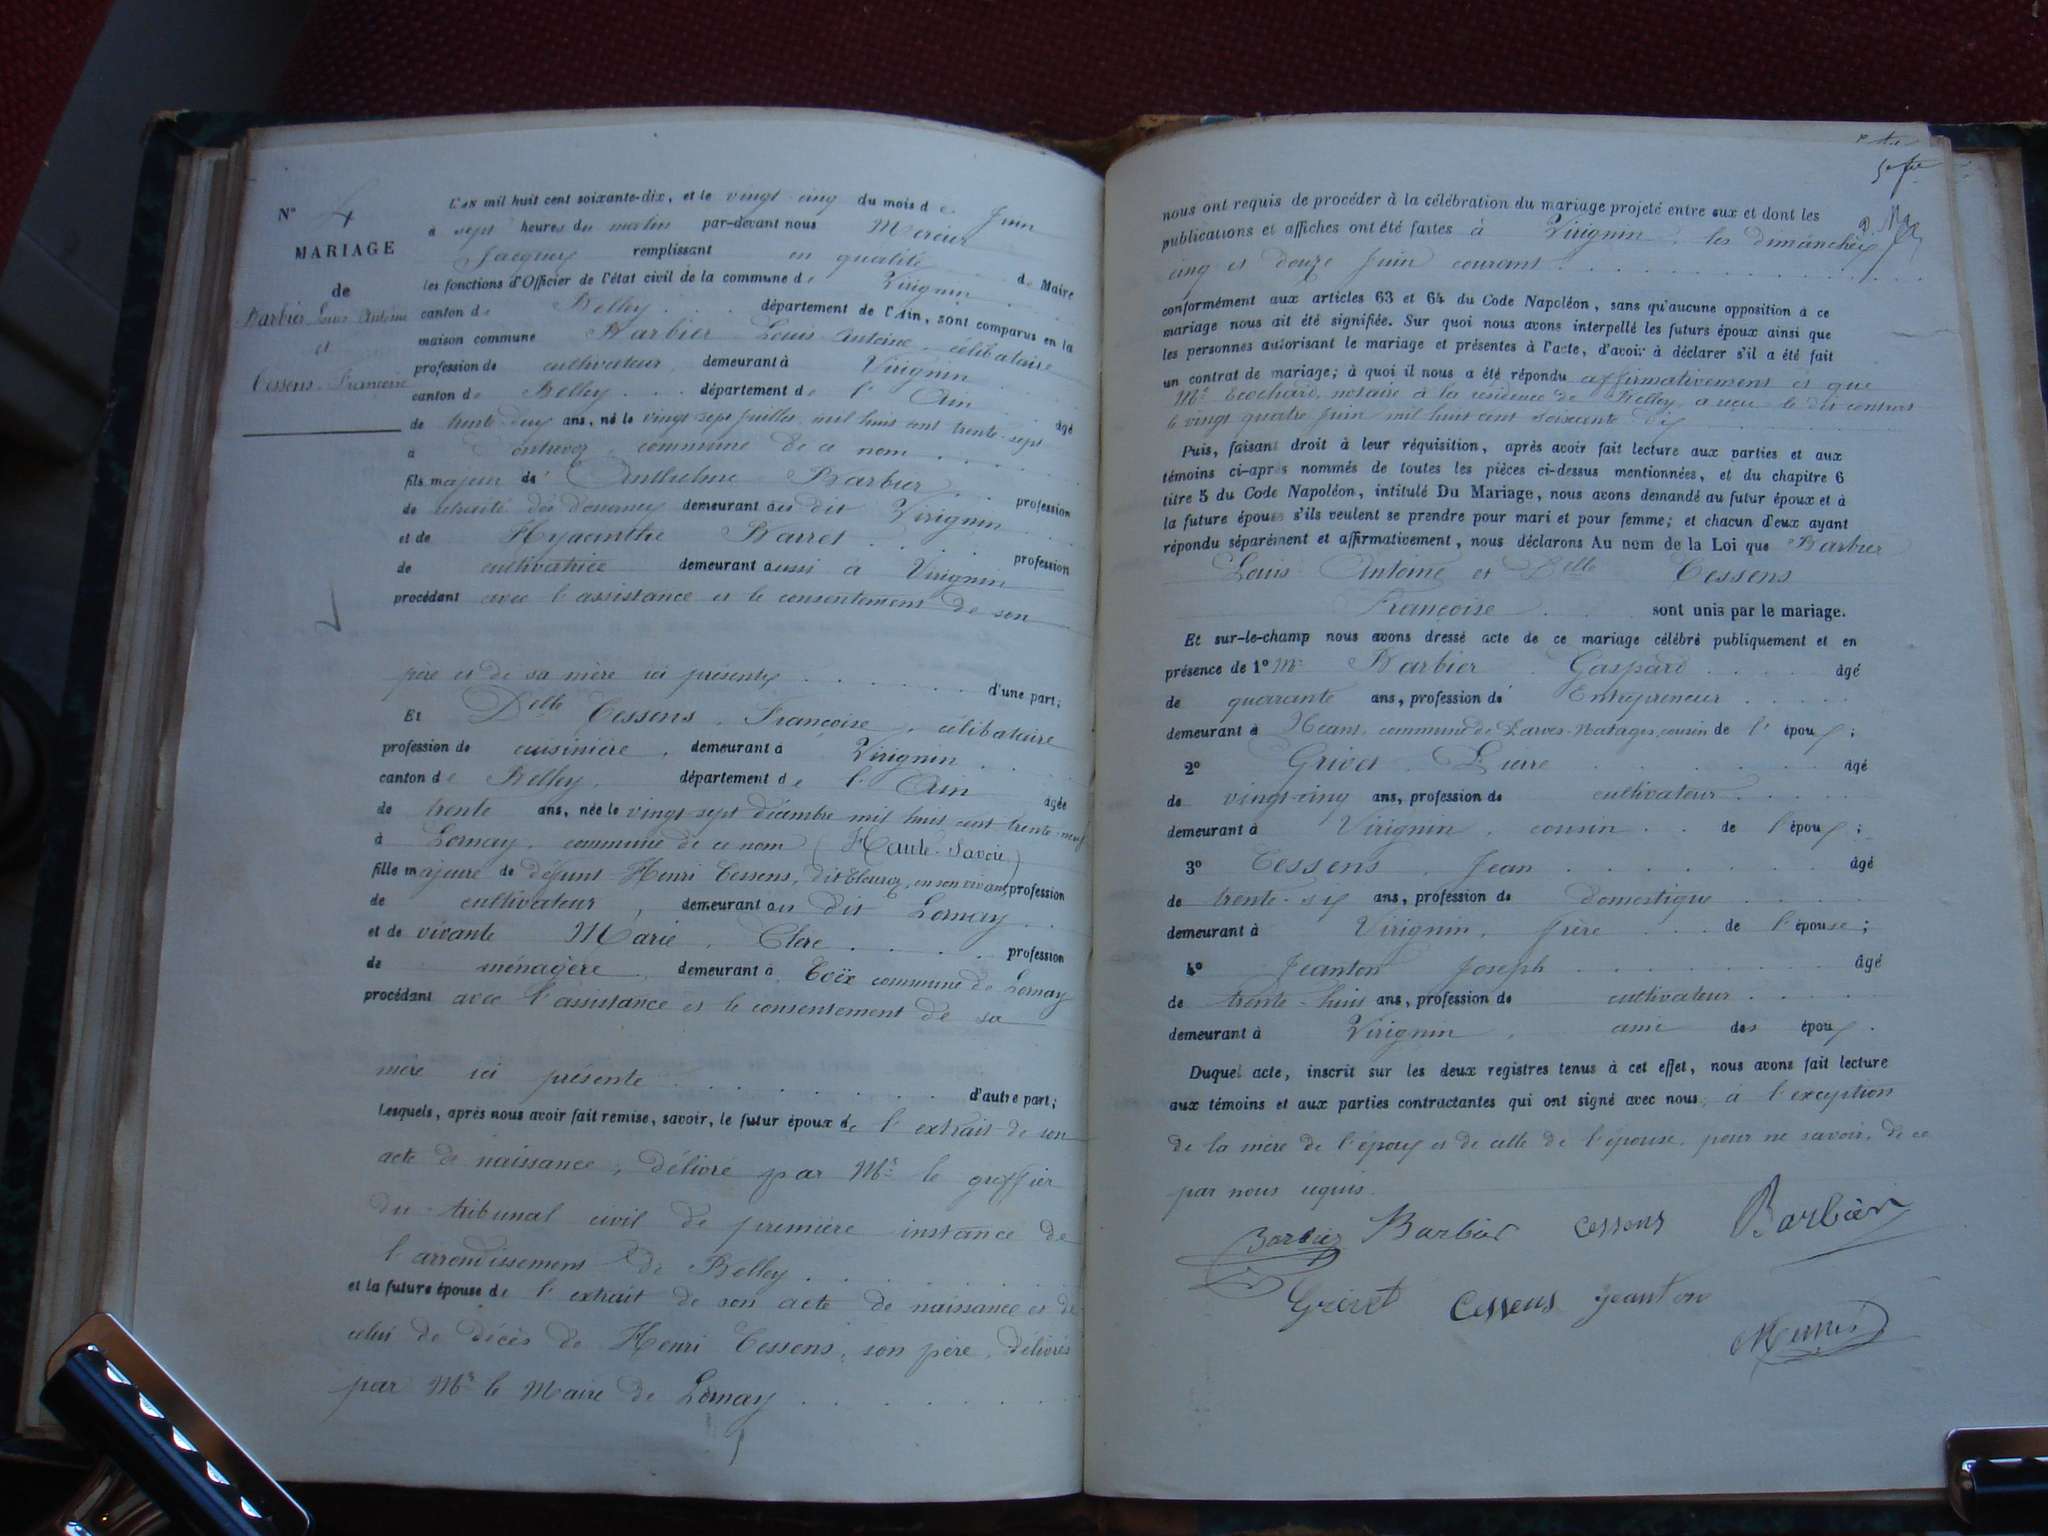 N° 4
MARIAGE
de
Barbier Louis Antoine
et
Cessens Françoise
L'an mil huit cent soixante-dix, et le vingt-cinq du mois de Juin
à sept heures du matin par-devant nous Mercier
Jacques remplissant en qualité de Maire
les fonctions d'Officier de l'état civil de la commune de Virignin
canton de Belley département de l'Ain, sont comparus en la
maison commune Barbier Louis Antoine, célibataire
profession de cultivateur, demeurant à Virignin
canton de Belley département de l'Ain âgé
de trente-deux ans, né le vingt-sept juillet mil huit cent trente-sept
à commune de ce nom
fils majeur de Anthelme Barbier profession
de retraité des douanes demeurant au dit Virignin
et de Hyacinthe Barret profession
de cultivatrice demeurant aussi à Virignin
procédant avec l'assistance et le consentement de son
père et de sa mère ici présents d'une part;
Et Delle Cessens, Françoise, célibataire
profession de cuisinière, demeurant à Virignin
canton de Belley, département de l'Ain âgée
de trente ans, née le vingt-sept décembre mil huit cent trente-neuf
à Lornay, commune de ce nom (Haute-Savoie)
fille majeure de défunt Henri Cessens, dit en son vivant, profession
de cultivateur, demeurant au dit Lornay
et de vivante Marie Clerc profession
de ménagère demeurant à commune de Lornay
procédant avec l'assistance et le consentement de sa
mère ici présente d'autre part;
Lesquels, après nous avoir fait remise, savoir, le futur époux de l'extrait de son
acte de naissance, délivré par Mr le greffier
du tribunal civil de première instance de
l'arrondissement de Belley
et la future épouse de l'extrait de son acte de naissance et de
celui de décès de Henri Cessens, son père, délivrés
par Mr le Maire de Lornay
nous ont requis de procéder à la célébration du mariage projeté entre eux et dont les
publications et affiches ont été faites à Virignin, les dimanches
cinq et douze Juin courant
conformément aux articles 63 et 64 du Code Napoléon, sans qu'aucune opposition à ce
mariage nous ait été signifiée. Sur quoi nous avons interpellé les futurs époux ainsi que
les personnes autorisant le mariage et présentes à l'acte, d'avoir à déclarer s'il a été fait
un contrat de mariage; à quoi il nous a été répondu affirmativement et que
Me notaire à la résidence de Belley a reçu le dit contrat
le vingt quatre Juin mil huit cent soixante dix
Puis, faisant droit à leur réquisition, après avoir fait lecture aux parties et aux
témoins ci-après nommés de toutes les pièces ci-dessus mentionnées, et du chapitre 6
titre 5 du Code Napoléon, intitulé Du Mariage, nous avons demandé au futur époux et à
la future épouse s'ils veulent se prendre pour mari et pour femme; et chacun d'eux ayant
répondu séparément et affirmativement, nous déclarons Au nom de la Loi que Barbier
Louis Antoine et Delle Cessens
Françoise sont unis par le mariage.
Et sur-le-champ nous avons dressé acte de ce mariage célébré publiquement et en
présence de 1° Mr Barbier Gaspard âgé
de quarante ans, profession de Entrepreneur
demeurant à commune de Parves-Natages, cousin de l'époux;
2° Grivet Pierre âgé
de vingt-cinq ans, profession de cultivateur
demeurant à Virignin, cousin de l'époux;
3° Cessens Jean âgé
de trente-six ans, profession de domestique
demeurant à Virignin, frère de l'épouse;
4° Jeanton Joseph âgé
de trente-huit ans, profession de cultivateur
demeurant à Virignin, ami des époux.
Duquel acte, inscrit sur les deux registres tenus à cet effet, nous avons fait lecture
aux témoins et aux parties contractantes qui ont signé avec nous, à l'exception
de la mère de l'époux et de celle de l'épouse, pour ne savoir, de ce
par nous requis.
Barbier Barbier cessens Barbier
Grivet Cessens jeanton